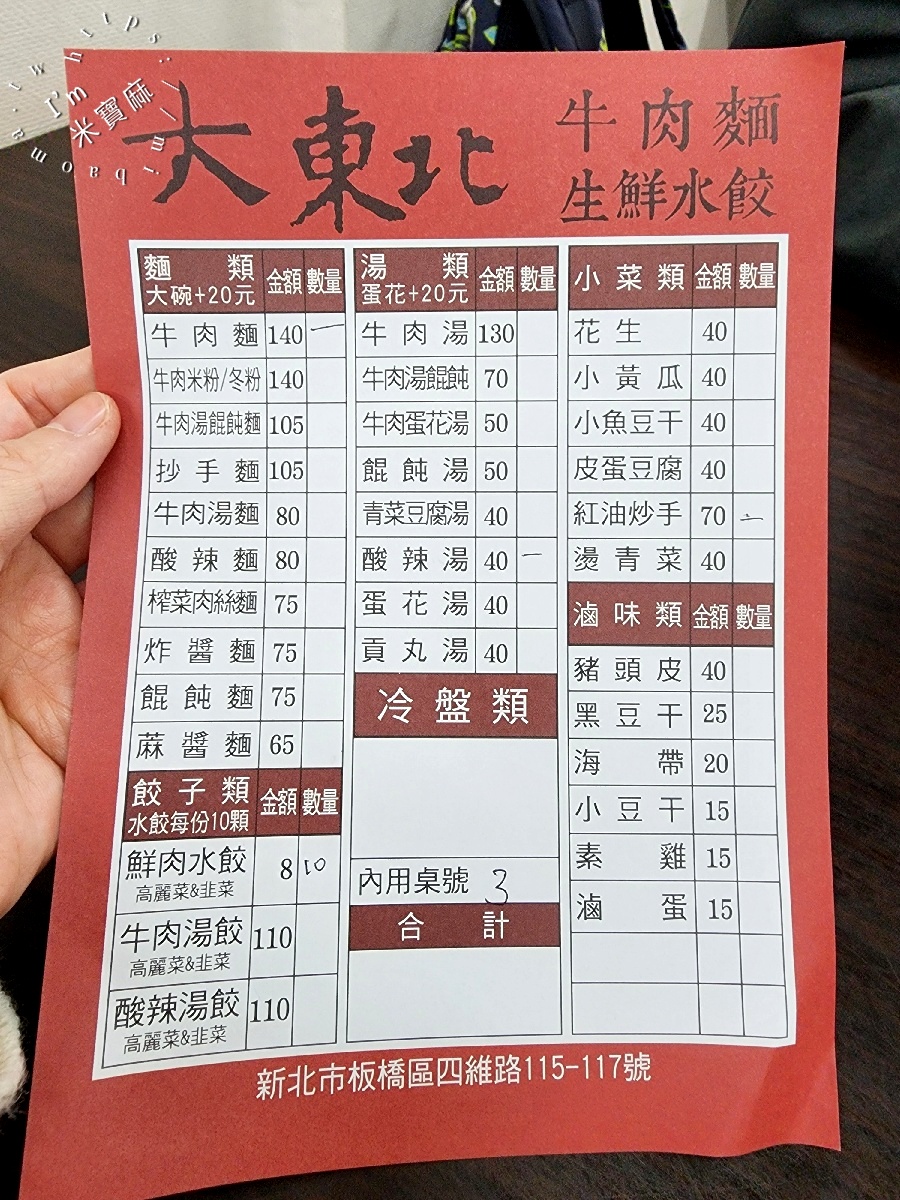 https://www.mibao.tw
I'm
米寶麻
大東北
牛肉麵
生鮮水餃
麵類 金額 數量
大碗+20元
牛肉麵 140 一
牛肉米粉/冬粉 140
牛肉湯餛飩麵 105
抄手麵 105
牛肉湯麵 80
酸辣麵 80
榨菜肉絲麵 75
炸醬麵 75
餛飩麵 75
蔴醬麵 65
餃子類 金額 數量
水餃每份10顆
鮮肉水餃 8 10
高麗菜&韭菜
牛肉湯餃 110
高麗菜&韭菜
酸辣湯餃 110
高麗菜&韭菜
湯類 金額 數量
蛋花+20元
牛肉湯 130
牛肉湯餛飩 70
牛肉蛋花湯 50
餛飩湯 50
青菜豆腐湯 40
酸辣湯 40 一
蛋花湯 40
貢丸湯 40
冷盤類
內用桌號 3
合計
小菜類 金額 數量
花生 40
小黃瓜 40
小魚豆干 40
皮蛋豆腐 40
紅油炒手 70 二
燙青菜 40
滷味類 金額 數量
豬頭皮 40
黑豆干 25
海帶 20
小豆干 15
素雞 15
滷蛋 15
新北市板橋區四維路115-117號